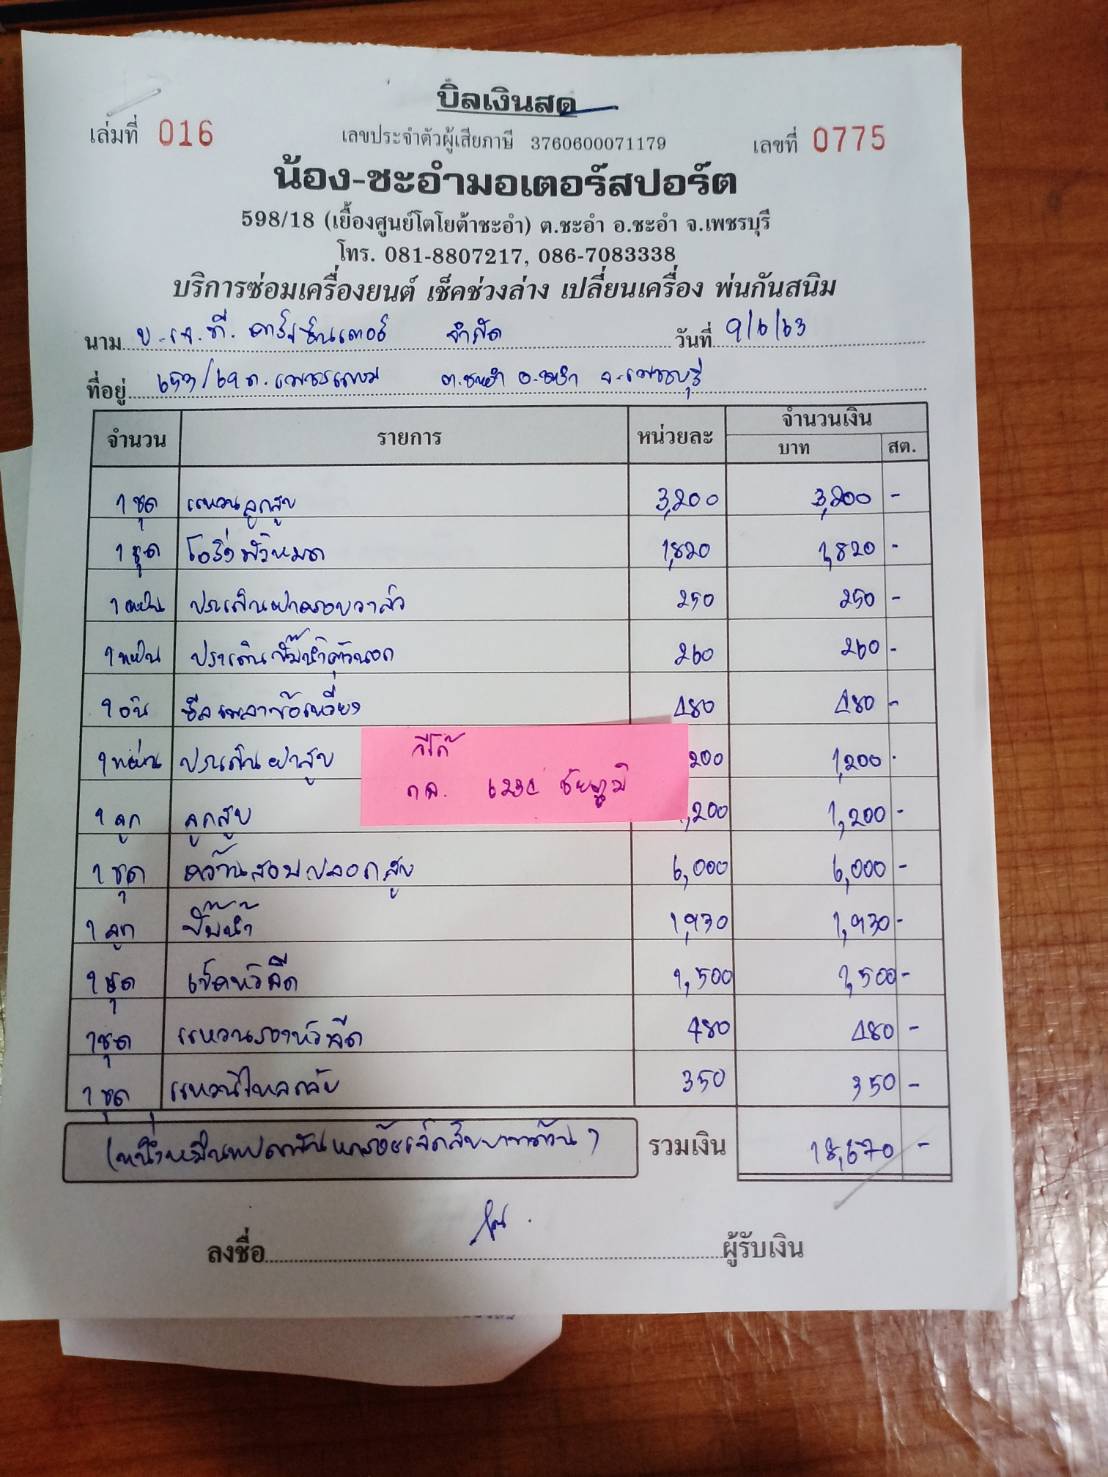 บิลเงินสด
เล่มที่ 016 เลขประจำตัวผู้เสียภาษี 3760600071179 เลขที่ 0775
น้อง-ชะอำมอเตอร์สปอร์ต
598/18 (เยื้องศูนย์โตโยต้าชะอำ) ต.ชะอำ อ.ชะอำ จ.เพชรบุรี
โทร. 081-8807217, 086-7083338
บริการซ่อมเครื่องยนต์ เช็คช่วงล่าง เปลี่ยนเครื่อง พ่นกันสนิม
นาม บ.เจ.ที. คาร์เซ็นเตอร์ จำกัด วันที่ 9/6/63
ที่อยู่ ถ.เพชรเกษม ต.ชะอำ อ.ชะอำ จ.เพชรบุรี
จำนวน รายการ หน่วยละ จำนวนเงิน
บาท สต.
1 ชุด แหวนลูกสูบ 3,200 3,200 -
1 ชุด โอริ่งหัวหมด 1,820 1,820 -
1 แผ่น ประเก็นฝาครอบวาล์ว 250 250 -
1 แผ่น ประเก็นปั๊มน้ำตัวนอก 260 260 -
1 อัน ซีลเพลาข้อเหวี่ยง 480 480 -
1 แผ่น ประเก็นฝาสูบ 200 1,200 -
1 ลูก ลูกสูบ ,200 1,200 -
1 ชุด คว้านสวมปลอกสูบ 6,000 6,000 -
1 ลูก ปั๊มน้ำ 1,930 1,930 -
1 ชุด เช็คหัวฉีด 1,500 1,500 -
1 ชุด แหวนรองหัวฉีด 480 480 -
1 ชุด แหวนไหลกลับ 350 350 -
วีโก้
ชัยภูมิ
(หนึ่งหมื่นแปดพันหกร้อยเจ็ดสิบบาทถ้วน) รวมเงิน 18,670 -
ลงชื่อ ผู้รับเงิน